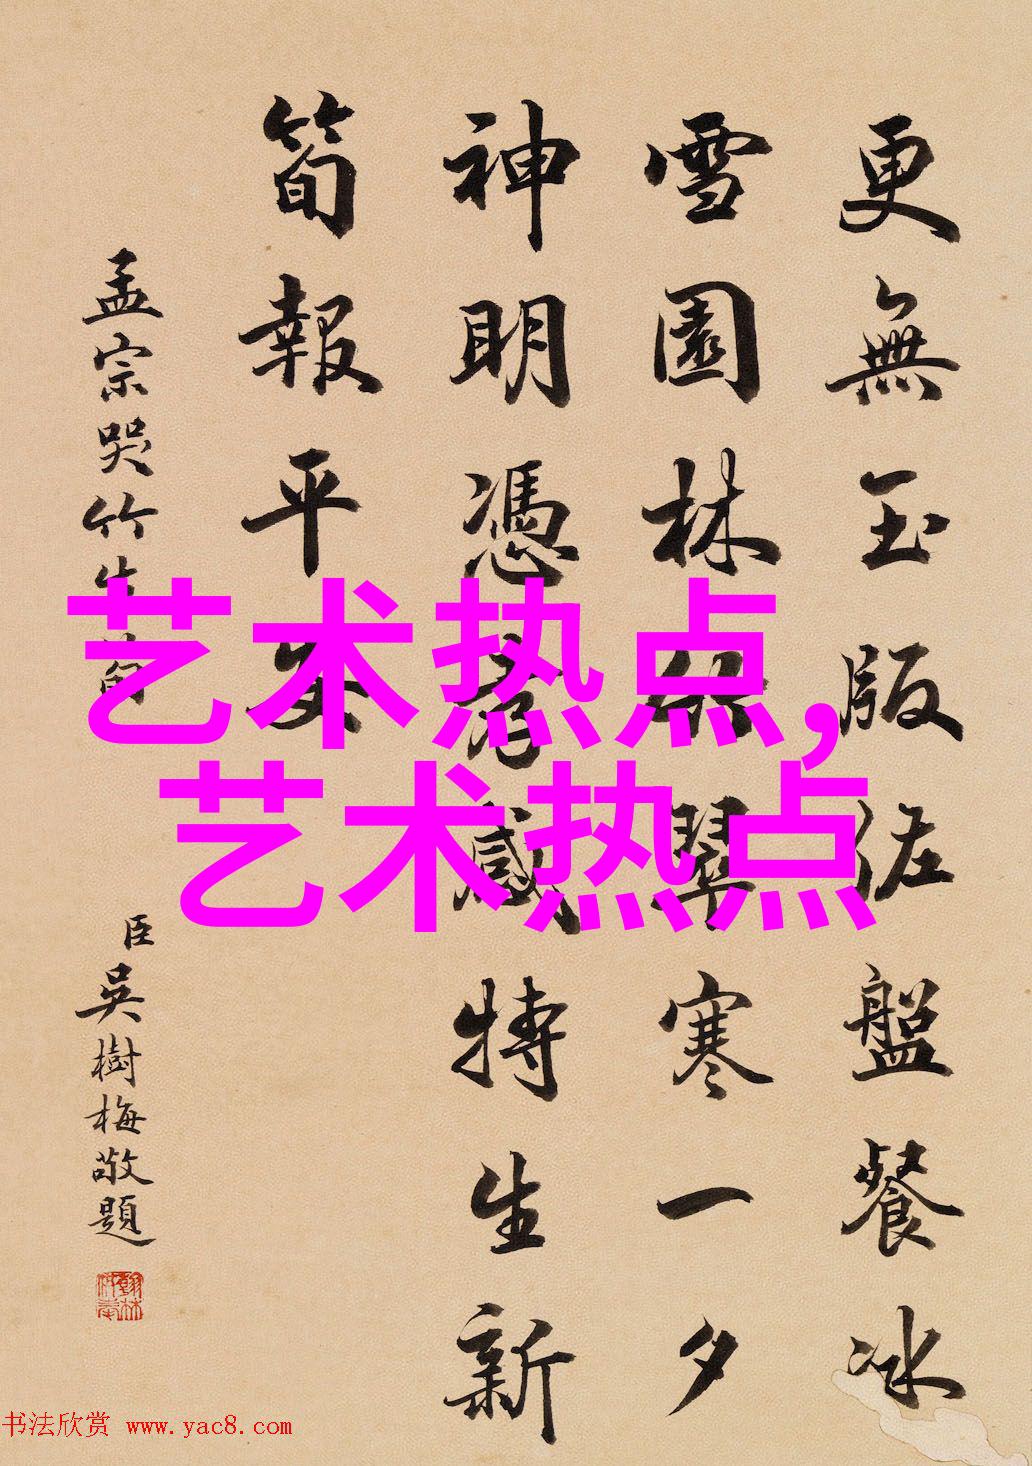 更無玉版佐盤餐冰
雪園林竹翠寒一夕
神明憑孝感特生新
筍報平安
孟宗哭竹生筍
臣吳樹梅敬題
翰林供奉
艺术热点,
艺术热点
书法欣赏 www.yac8.com